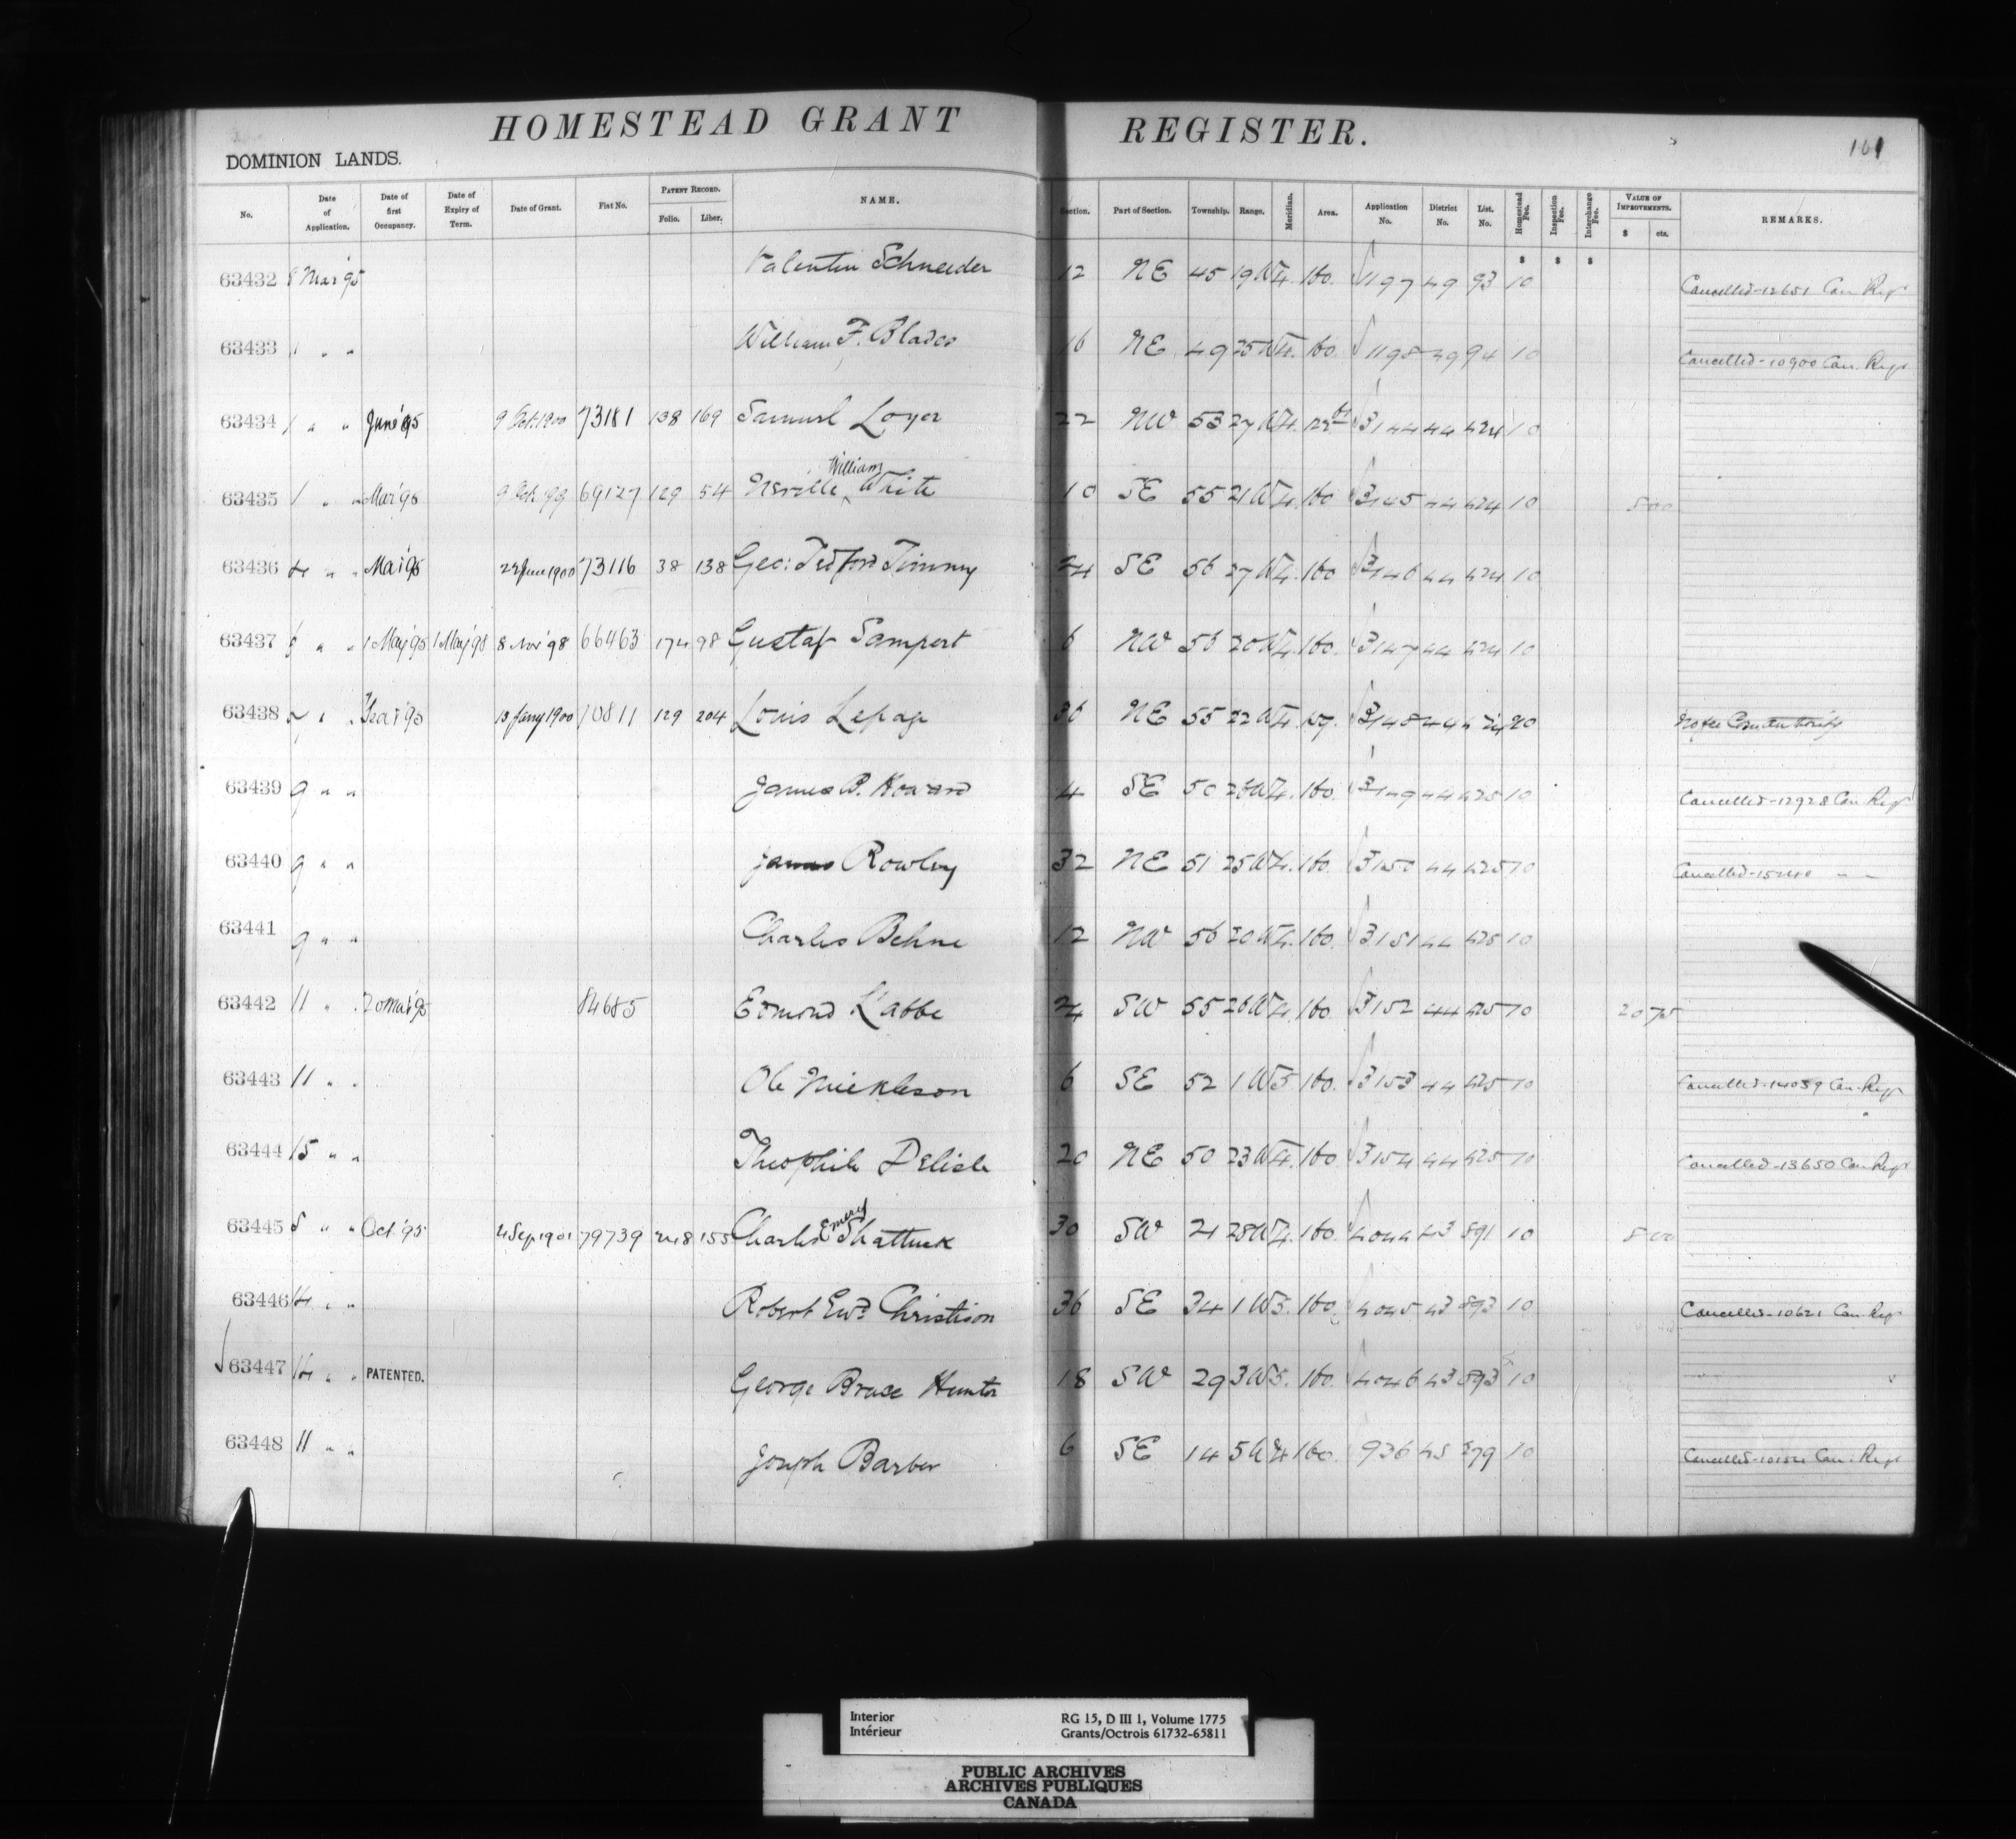 HOMESTEAD GRANT REGISTER.
161
DOMINION LANDS.
No. Date of Application. Date of first Occupancy. Date of Expiry of Term. Date of Grant. Fiat No. PATENT RECORD. Folio. Liber. NAME. Section. Part of Section. Township. Range. Meridian. Area. Application No. District No. List. No. Homestead Fee. Inspection Fee. Interchange Fee. VALUE OF IMPROVEMENTS. $ cts. REMARKS.
$ $ $
63432 8 Mar '95 Valentin Schneider 12 NE 45 19 W4. 160. 1197 49 93 10 Cancelled-12651 Can Regr
63433 1 " " William F. Blades 16 NE 49 25 W4. 160. 1198 49 94 10 Cancelled-10900 Can. Regr
63434 1 " " June '95 9 Oct. 1900 73181 138 169 Samuel Loyer 22 NW 53 27 W4. 3144 44 424 10
63435 1 " " Mar '95 9 Oct. '99 69127 129 54 Neville William White 10 SE 55 21 W4. 160 3145 44 424 10 800
63436 4 " " Mar '95 22 June 1900 73116 38 138 Geo: Tedford Timmy 24 SE 56 27 W4. 160 3146 44 424 10
63437 6 " " 1 May '95 1 May '98 8 Nov '98 66463 174 98 Gustaf Sampert 6 NW 56 20 W4. 160. 3147 44 424 10
63438 " " '95 13 Jany 1900 70811 129 204 Louis Lepage 36 NE 55 22 W4. 157. 3148 44 424 20
63439 9 " " James B. Howard 4 SE 50 26 W4. 160. 3149 44 425 10 Cancelled-12928 Can. Regr
63440 9 " " James Rowley 32 NE 51 25 W4. 160. 3150 44 425 10 Cancelled- " "
63441 9 " " Charles Behne 12 NW 56 20 W4. 160. 3151 44 425 10
63442 11 " " 20 Mar '95 84685 Edmond L'abbe 24 SW 55 26 W4. 160. 3152 44 425 10 20 75
63443 11 " " Ole Mickleson 6 SE 52 1 W5 160. 3153 44 425 10 Cancelled-14059 Can. Regr
63444 15 " " Theophile Delisle 20 NE 50 23 W4. 160 3154 44 425 10 Cancelled-13650 Can Regr
63445 8 " " Oct. '95 4 Sep 1901 79739 248 155 Charles Emery Shattuck 30 SW 21 28 W4. 160. 4044 43 891 10 800
63446 14 " " Robert Ewd. Christison 36 SE 34 1 W5. 160. 4045 43 893 10 Cancelled-10621 Can. Regr
63447 14 " " PATENTED. George Bruce Hunter 18 SW 29 3 W5. 160. 4046 43 893 10
63448 11 " " Joseph Barber 6 SE 14 5 W4 160. 936 45 279 10 Cancelled- Can: Regr
Interior
Intérieur
RG 15, D III 1, Volume 1775
Grants/Octrois 61732-65811
PUBLIC ARCHIVES
ARCHIVES PUBLIQUES
CANADA